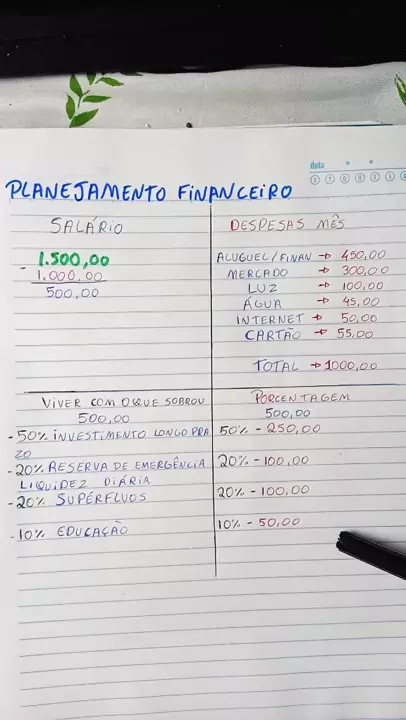 data
PLANEJAMENTO FINANCEIRO
SALÁRIO
- 1.500,00
1.000,00
500,00
DESPESAS MÊS
ALUGUEL/FINAN → 450,00
MERCADO → 300,00
LUZ → 100,00
ÁGUA → 45,00
INTERNET → 50,00
CARTÃO → 55,00
TOTAL → 1000,00
VIVER COM OQUE SOBROU
500,00
- 50% INVESTIMENTO LONGO PRA
ZO
- 20% RESERVA DE EMERGÊNCIA
LIQUIDEZ DIÁRIA
- 20% SUPÉRFLUOS
- 10% EDUCAÇÃO
PORCENTAGEM
500,00
50% - 250,00
20% - 100,00
20% - 100,00
10% - 50,00